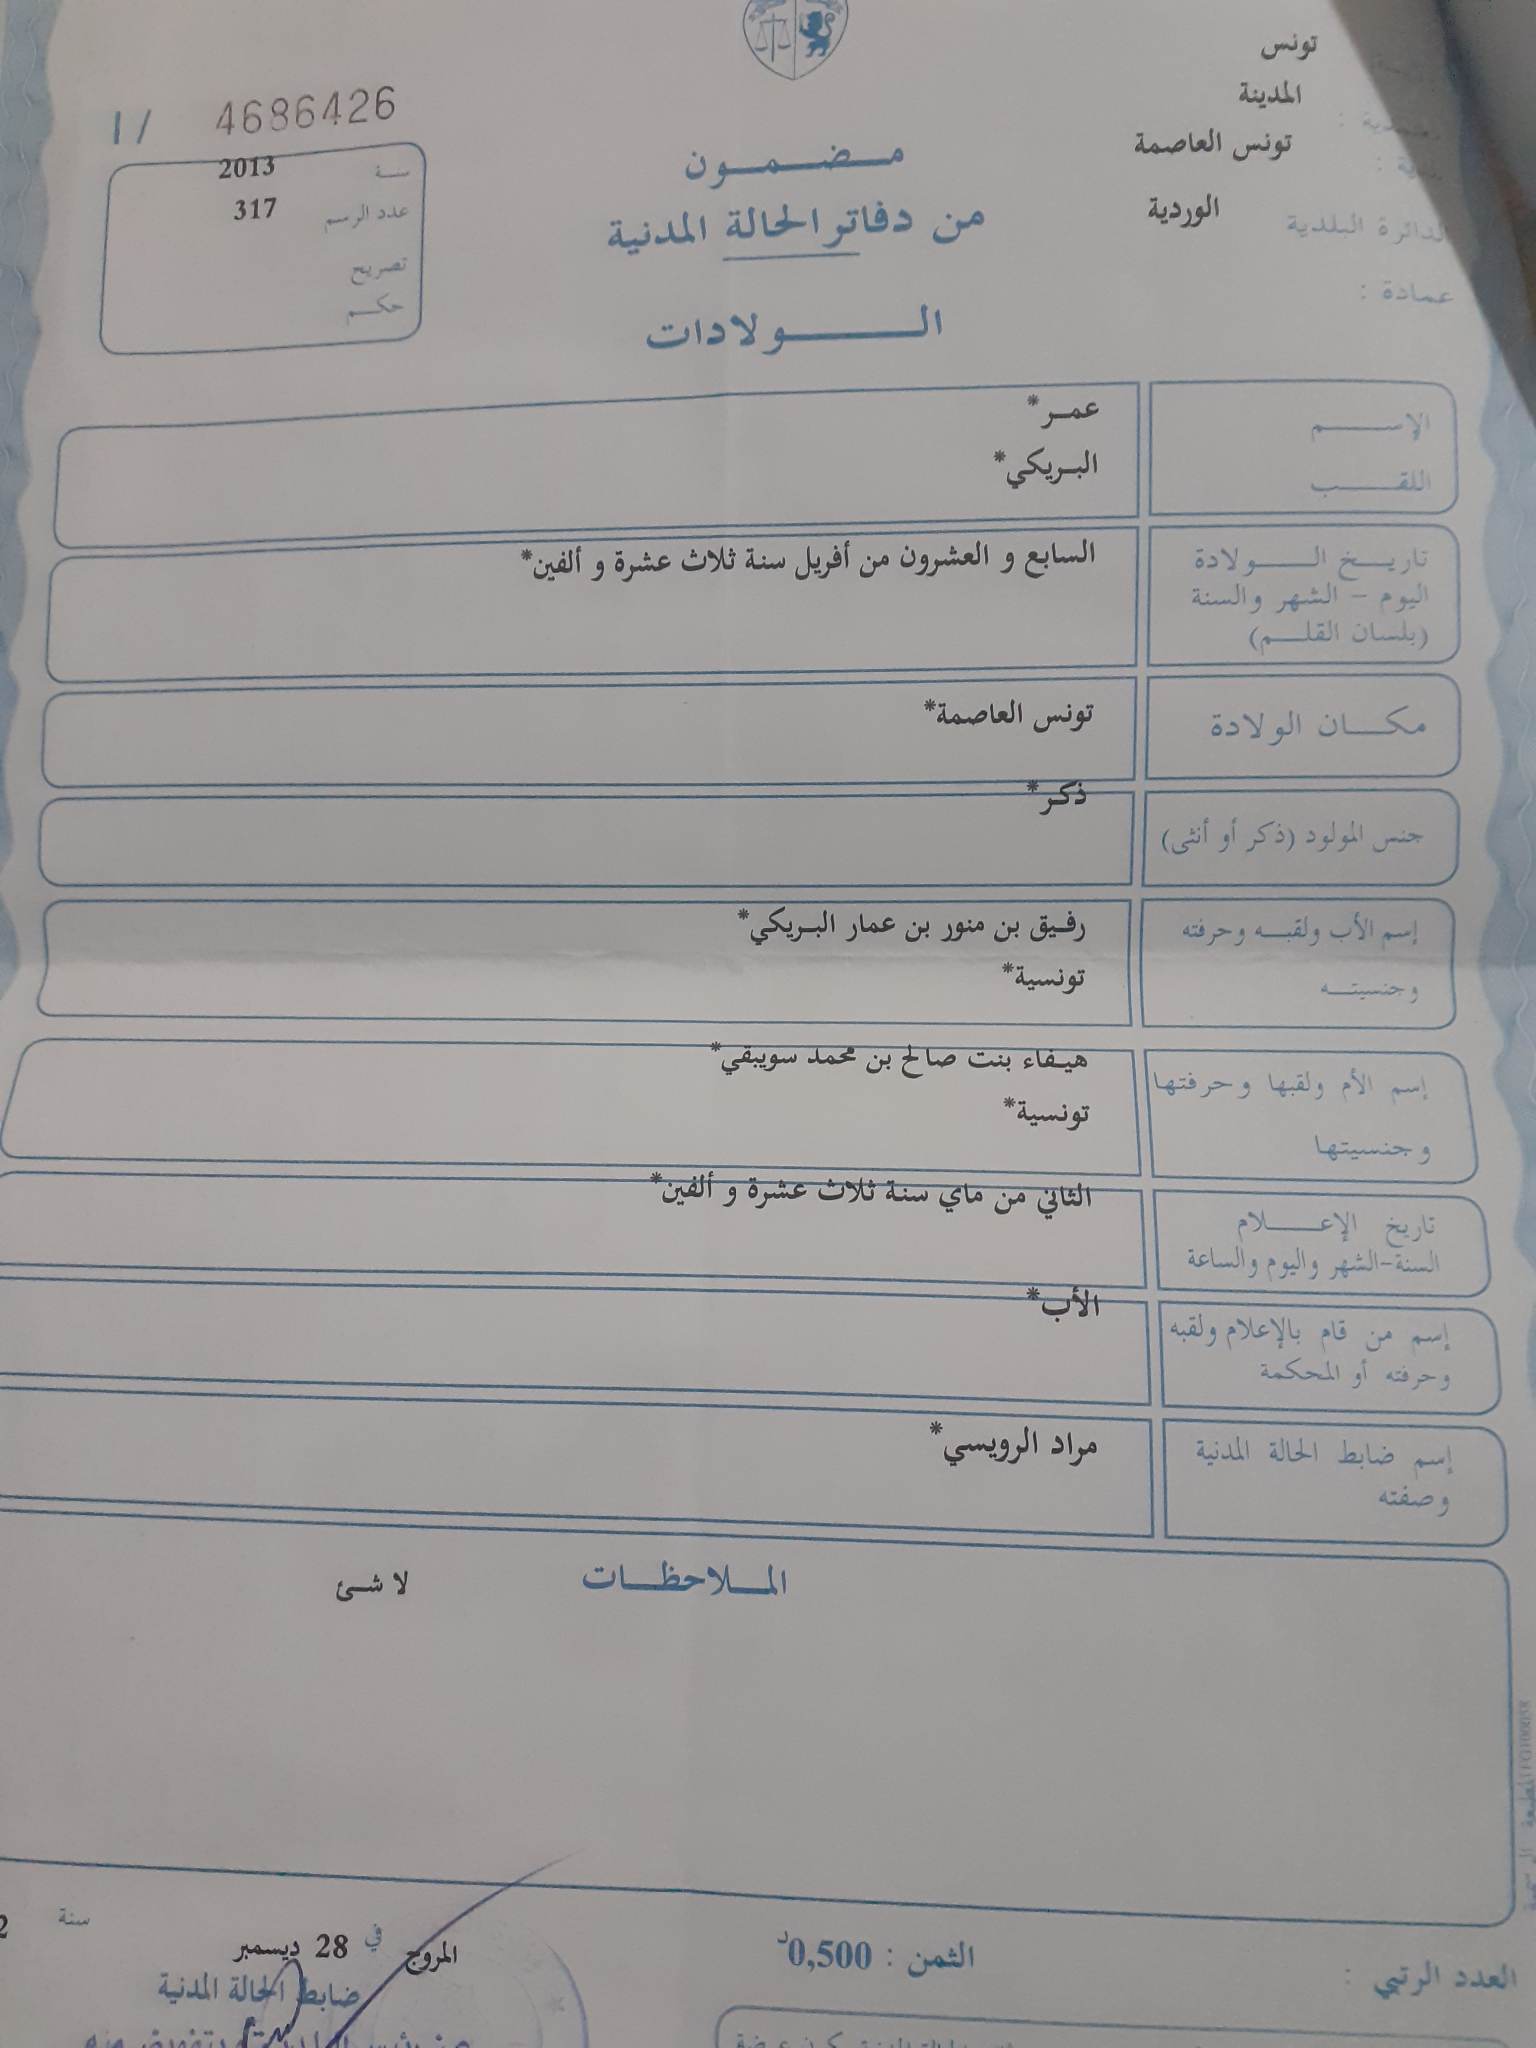 تونس
المدينة
تونس العاصمة
الدائرة البلدية الوردية
عمادة :
1/ 4686426
سنة 2013
عدد الرسم 317
تصريح
حكم
مضمون
من دفاتر الحالة المدنية
الولادات
الإسم عمر*
اللقب البريكي*
تاريخ الولادة السابع و العشرون من أفريل سنة ثلاث عشرة و ألفين*
اليوم - الشهر والسنة
(بلسان القلم)
مكان الولادة تونس العاصمة*
جنس المولود (ذكر أو أنثى) ذكر*
إسم الأب ولقبه وحرفته رفيق بن منور بن عمار البريكي*
وجنسيته تونسية*
إسم الأم ولقبها وحرفتها هيفاء بنت صالح بن محمد سويبقي*
وجنسيتها تونسية*
تاريخ الإعلام الثاني من ماي سنة ثلاث عشرة و ألفين*
السنة-الشهر واليوم والساعة
إسم من قام بالإعلام ولقبه الأب*
وحرفته أو المحكمة
إسم ضابط الحالة المدنية مراد الرويسي*
وصفته
الملاحظات لا شئ
المروج في 28 ديسمبر سنة
ضابط الحالة المدنية
العدد الرتبي :
الثمن : 0,500د